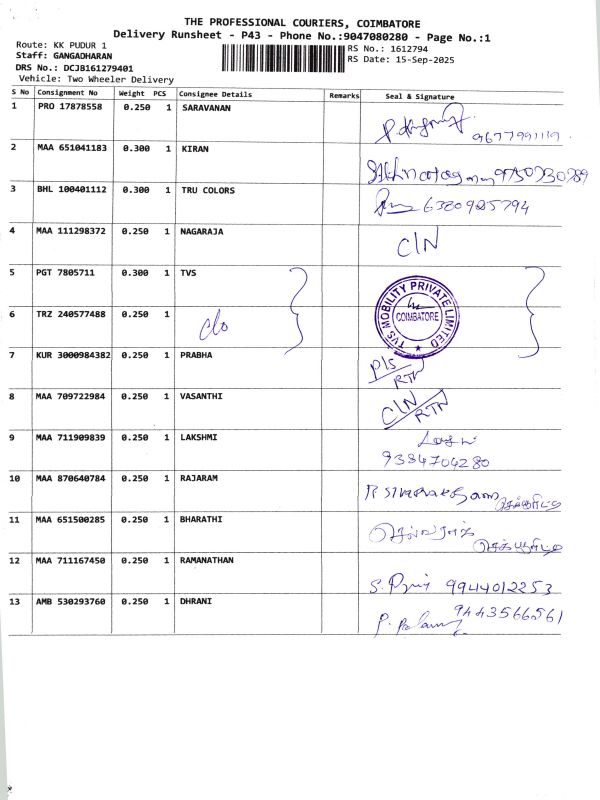 THE PROFESSIONAL COURIERS, COIMBATORE
Delivery Runsheet - P43 - Phone No.:9047080280 - Page No.:1
Route: KK PUDUR 1
RS No.: 1612794
Staff: GANGADHARAN
RS Date: 15-Sep-2025
DRS No.: DCJB161279401
Vehicle: Two Wheeler Delivery
S No Consignment No Weight PCS Consignee Details Remarks Seal & Signature
1 PRO 17878558 0.250 1 SARAVANAN
2 MAA 651041183 0.300 1 KIRAN
3 BHL 100401112 0.300 1 TRU COLORS 6380925794
4 MAA 111298372 0.250 1 NAGARAJA C/N
5 PGT 7805711 0.300 1 TVS
TVS MOBILITY PRIVATE LIMITED
COIMBATORE
6 TRZ 240577488 0.250 1 c/o
7 KUR 3000984382 0.250 1 PRABHA P/S RTN
8 MAA 709722984 0.250 1 VASANTHI C/N RTN
9 MAA 711909839 0.250 1 LAKSHMI
9384704280
10 MAA 870640784 0.250 1 RAJARAM
11 MAA 651500285 0.250 1 BHARATHI
12 MAA 711167450 0.250 1 RAMANATHAN
9944012253
13 AMB 530293760 0.250 1 DHRANI
9443566561